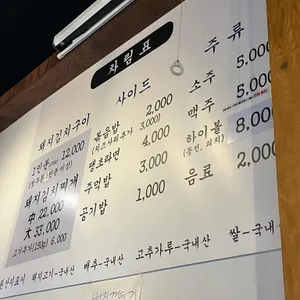 차림표
돼지김치구이
1인분 12,000
돼지김치찌개
中 22,000
大 33,000
고기추가(150g) 6,000
사이드
볶음밥 2,000
(치즈사리추가 3,000)
땡초라면 4,000
주먹밥 3,000
공기밥 1,000
주류
소주 5,000
맥주 5,000
하이볼 8,000
음료 2,000
원산지표시 돼지고기-국내산 배추-국내산 고추가루-국내산 쌀-국내산